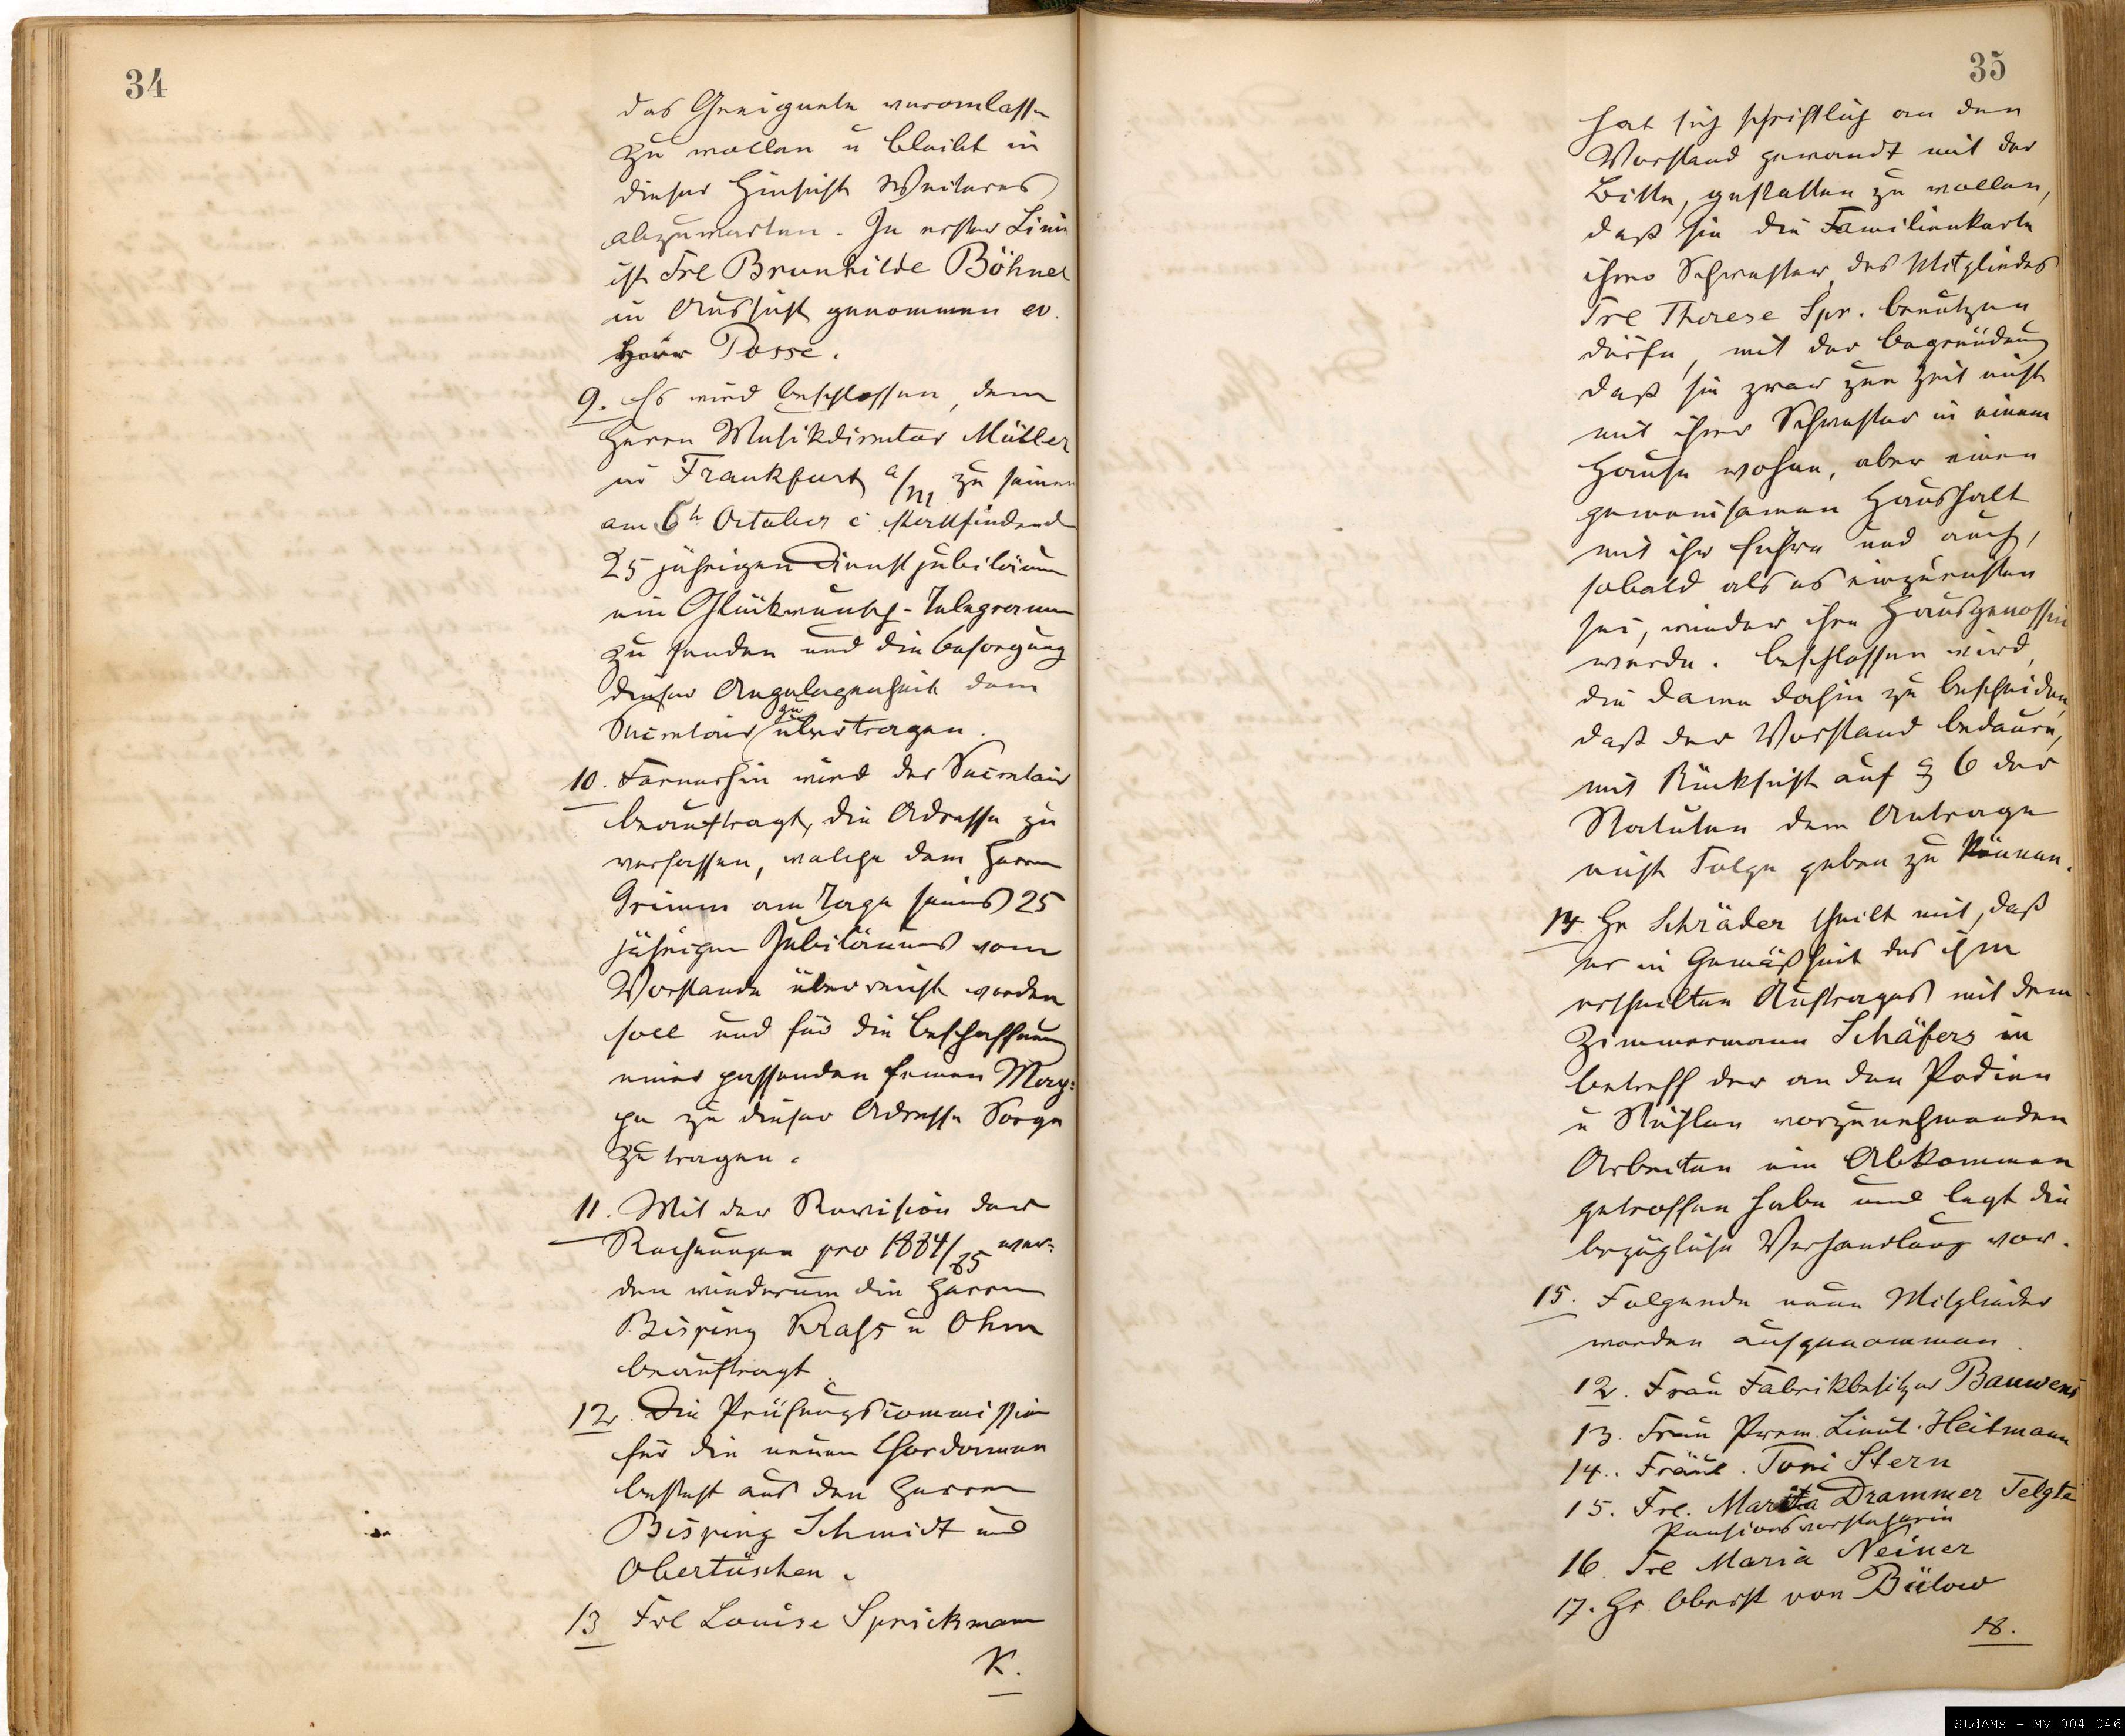 34
das Geeignete veranlassen
zu wollen u bleibt in
dieser Hinsicht Weiteres
abzuwarten. In erster Linie
ist Frl Brunhilde Böhner
in Aussicht genommen ev.
Herr Posse.
9. Es wird beschlossen, dem
Herrn Musikdirector Müller
in Frankfurt a/M zu seinem
am 6n October c stattfindend
25 jährigen Dienstjubiläum
ein Glückwunsch-Telegramm
zu senden und die Besorgung
dieser Angelegenheit dem
Secretair zu übertragen.
10. Fernerhin wird der Secretair
beauftragt, die Adresse zu
verfassen, welche dem Herrn
Grimm am Tage seines 25
jährigen Jubiläums vom
Vorstande überreicht werden
soll und für die Beschaffung
einer passenden feinen Map=
pe zu dieser Adresse Sorge
zu tragen.
11. Mit der Revision der
Rechnungen pro 1884/85 wer=
den wiederum die Herren
Bisping Krass u Ohm
beauftragt.
12. Die Prüfungscommission
für die neuen Chordamen
besteht aus den Herren
Bisping Schmidt und
Obertüschen.
13 Frl Louise Sprickmann
K.
35
hat sich schriftlich an den
Vorstand gewandt mit der
Bitte, gestatten zu wollen,
daß sie die Familienkarte
ihrer Schwester, des Mitgliedes
Frl Therese Spr. benutzen
dürfe, mit der Begründung
daß sie zwar zur Zeit nicht
mit ihrer Schwester in einem
Hause wohne, aber einen
gemeinsamen Haushalt
mit ihr führe und auch,
sobald als es einzurichten
sei, wieder ihre Hausgenossin
werde. Beschlossen wird,
die Dame dahin zu bescheiden,
daß der Vorstand bedaure,
mit Rücksicht auf § 6 der
Statuten dem Antrage
nicht Folge geben zu können.
14. Hr Schräder theilt mit, daß
er in Gemäßheit des ihm
ertheilten Auftrages mit dem
Zimmermann Schäfers in
betreff der an den Podien
u Stühlen vorzunehmenden
Arbeiten ein Abkommen
getroffen habe und legt die
bezügliche Verhandlung vor.
15. Folgende neue Mitglieder
werden aufgenommen
12. Frau Fabrikbesitzer Bauwens
13. Frau Prem. Lieut. Heitmann
14.. Fräul. Toni Stern
15. Frl. Maria Drammer Telgte
Pensionsvorsteherin
16. Frl Maria Neiner
17. Hr Oberst von Bülow
18.
StdAMs - MV_004_046